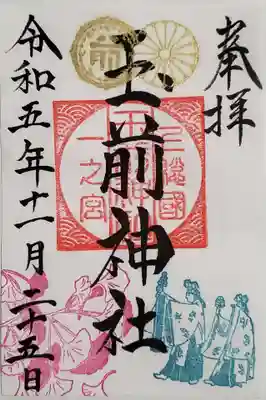 奉拝
玉前神社
令和五年十一月二十五日
上總國
一之宮